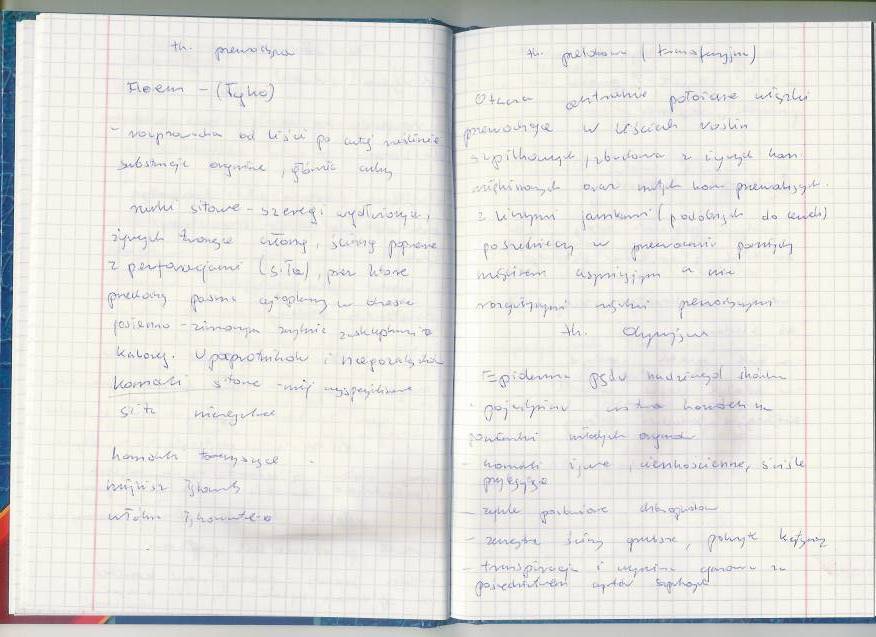 th. przewodząca
Floem - (Łyko)
- rozprowadza od liści po całej roślinie
substancje organiczne, głównie cukry
rurki sitowe - szeregi wydłużonych,
żywych tworzące człony, ściany poprzeczne
z perforacjami (sita), przez które
pasma cytoplazmy w okresie
jesienno - zimowym
kalozą. U paprotników i nagozalążkowych
komórki sitowe - mniej wyspecjalizowane
sita
komórki towarzyszące
miękisz łykowy
włókna łykowe
th. (transfuzyjna)
Otacza centralnie położone wiązki
przewodzące w liściach roślin
szpilkowych, zbudowana z żywych kom.
miękiszowych oraz kom przewodzących.
z licznymi jamkami (podobnych do cewek)
pośredniczy w przewodzeniu pomiędzy
miękiszem asymilującym a nie
wiązkami przewodzącymi
th. okrywająca
Epiderma pędu nadziemnego skórka
pojedyncza warstwa komórek na
powierzchni młodych organów
- komórki żywe, cienkościenne, ściśle
przylegające
- zwykle pozbawione chloroplastów
- zewnętrzne ściany grubsze, pokryte kutykulą
- transpiracja i wymiana gazowa za
pośrednictwem aparatów szparkowych